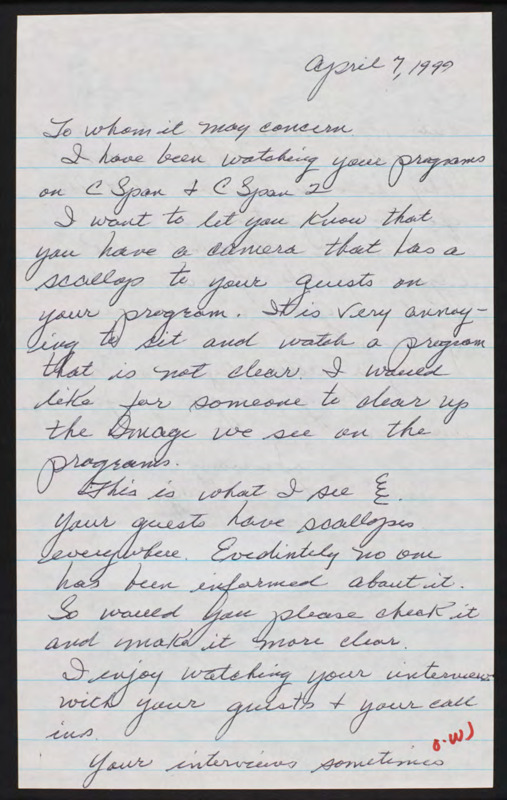 April 7, 1999
To whom it may concern
I have been watching your programs
on C Span + C Span 2
I want to let you know that
you have a camera that has a
scallop to your guests on
your program. It is very annoy-
ing to sit and watch a program
that is not clear. I would
like for someone to clear up
the Image we see on the
programs.
This is what I see
Your guests have scallopes
everywhere. Evedintely no one
has been informed about it.
So would you please check it
and make it more clear.
I enjoy watching your interviews
with your guests + your call
ins.
Your interviews sometimes